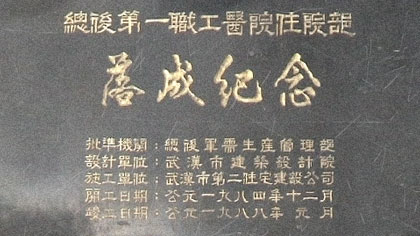 總後第一職工醫院住院部
落成纪念
批準機關:總後軍需生産管理部
設計單位:武漢市建築設計院
施工單位:武漢市第二住宅建設公司
開工日期:公元一九八四年十二月
竣工日期:公元一九八八年元月